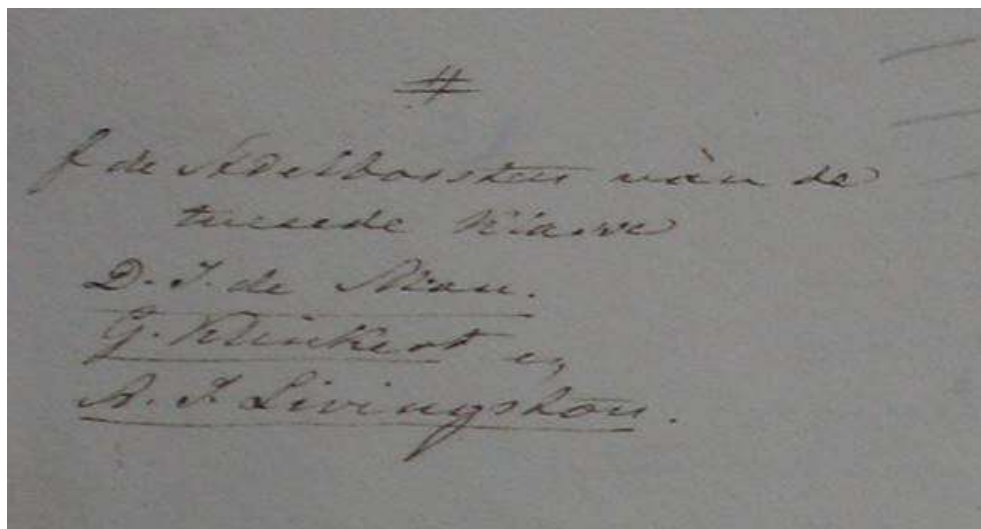 #
f de Adelborsten van de
tweede klasse
D. J. de Man.
G. Klinkert en
A. J. Livingston.